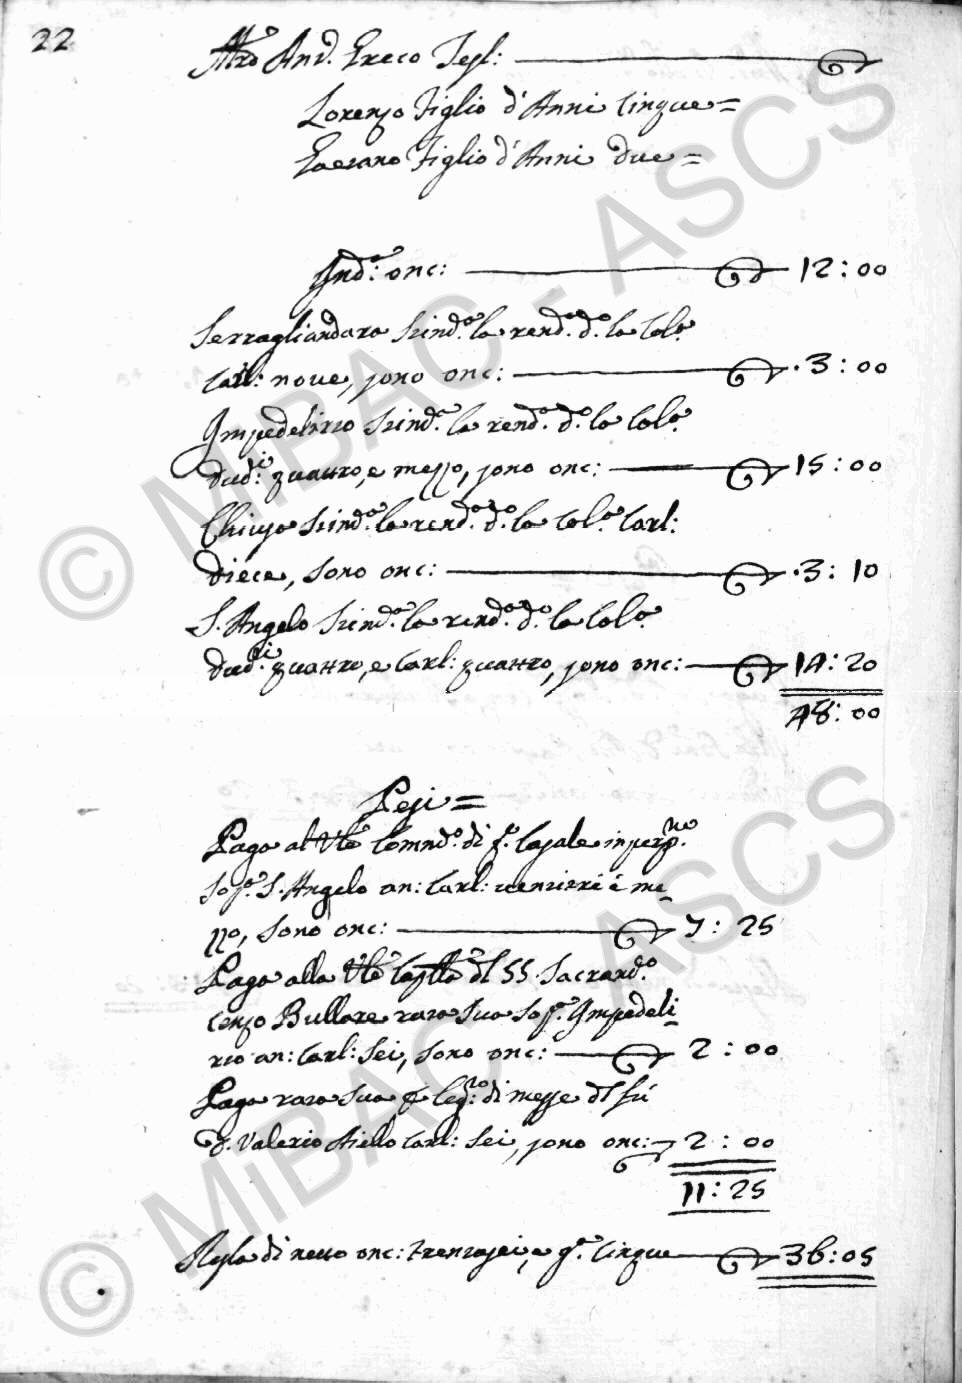 22
Mro And. Greco Tesl:
Lorenzo Figlio d'Anni Cinque =
Gaetano Figlio d'Anni due =
Ind.a: onc: 12:00
Serragliandaro Stind.o la rend.a d.o la Col.a
Carl: nove, sono onc: 3:00
Impedelirto Stind.o la rend.a d.o la Col.a
Ducti: quattro, e mezzo, sono onc: 15:00
Chiusa Stind.o la rend.a d.o la Col.a Carl:
diece, sono onc: 3:10
S. Angelo Stind.o la rend.a d.o la Col.a
Ducti: quattro, e Carl: quattro, sono onc: 14:20
48:00
Pesi =
Paga al Commd.o di S. Casale in perp.no
Sop.a S. Angelo an: Carl: ventitrè e me
zzo, sono onc: 7:25
Paga alla Caplla dl SS. Sacramd.o
censo Bullare rata sua sop.a Impedeli
rto an: Carl: Sei, sono onc: 2:00
Paga rata sua di messe dl fù
D. Valerio Aiello Carl: Sei, sono onc: 2:00
11:25
Resta di netto onc: trentasei, e g.a Cinque 36:05
© MiBAC - ASCS
© MiBAC - ASCS